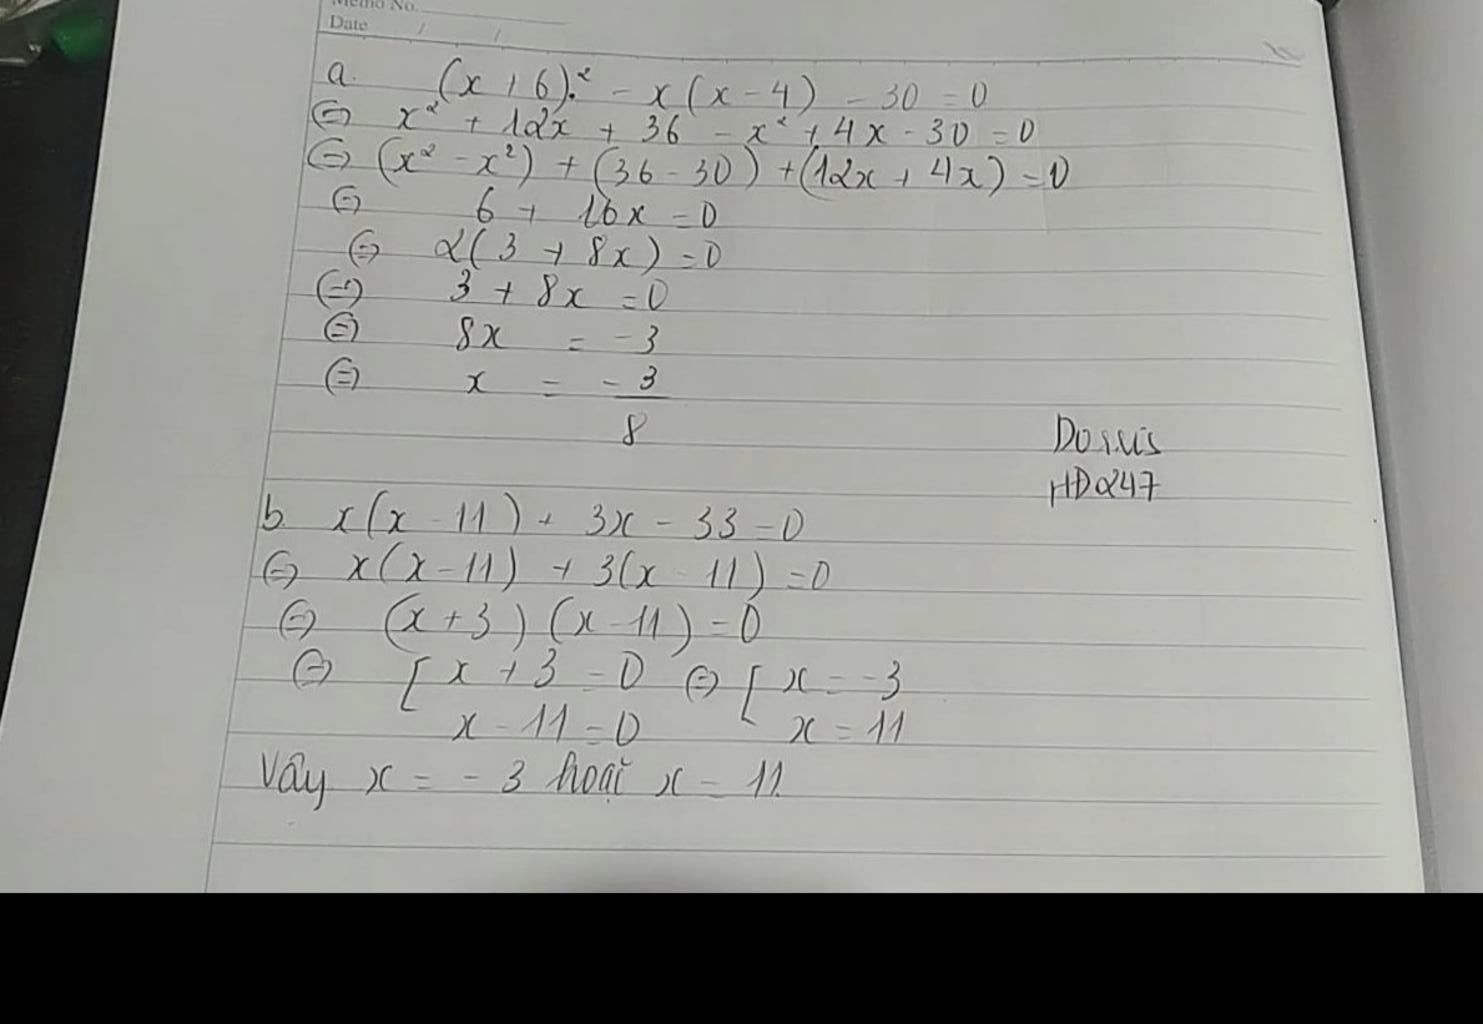 Memo No.
Date / /
a. (x + 6)² - x(x - 4) - 30 = 0
⇔ x² + 12x + 36 - x² + 4x - 30 = 0
⇔ (x² - x²) + (36 - 30) + (12x + 4x) = 0
⇔ 6 + 16x = 0
⇔ 2(3 + 8x) = 0
⇔ 3 + 8x = 0
⇔ 8x = -3
⇔ x = -3/8
HD247
b. x(x - 11) + 3x - 33 = 0
⇔ x(x - 11) + 3(x - 11) = 0
⇔ (x + 3)(x - 11) = 0
⇔ [ x + 3 = 0 ⇔ [ x = -3
x - 11 = 0 x = 11
Vậy x = -3 hoặc x = 11.